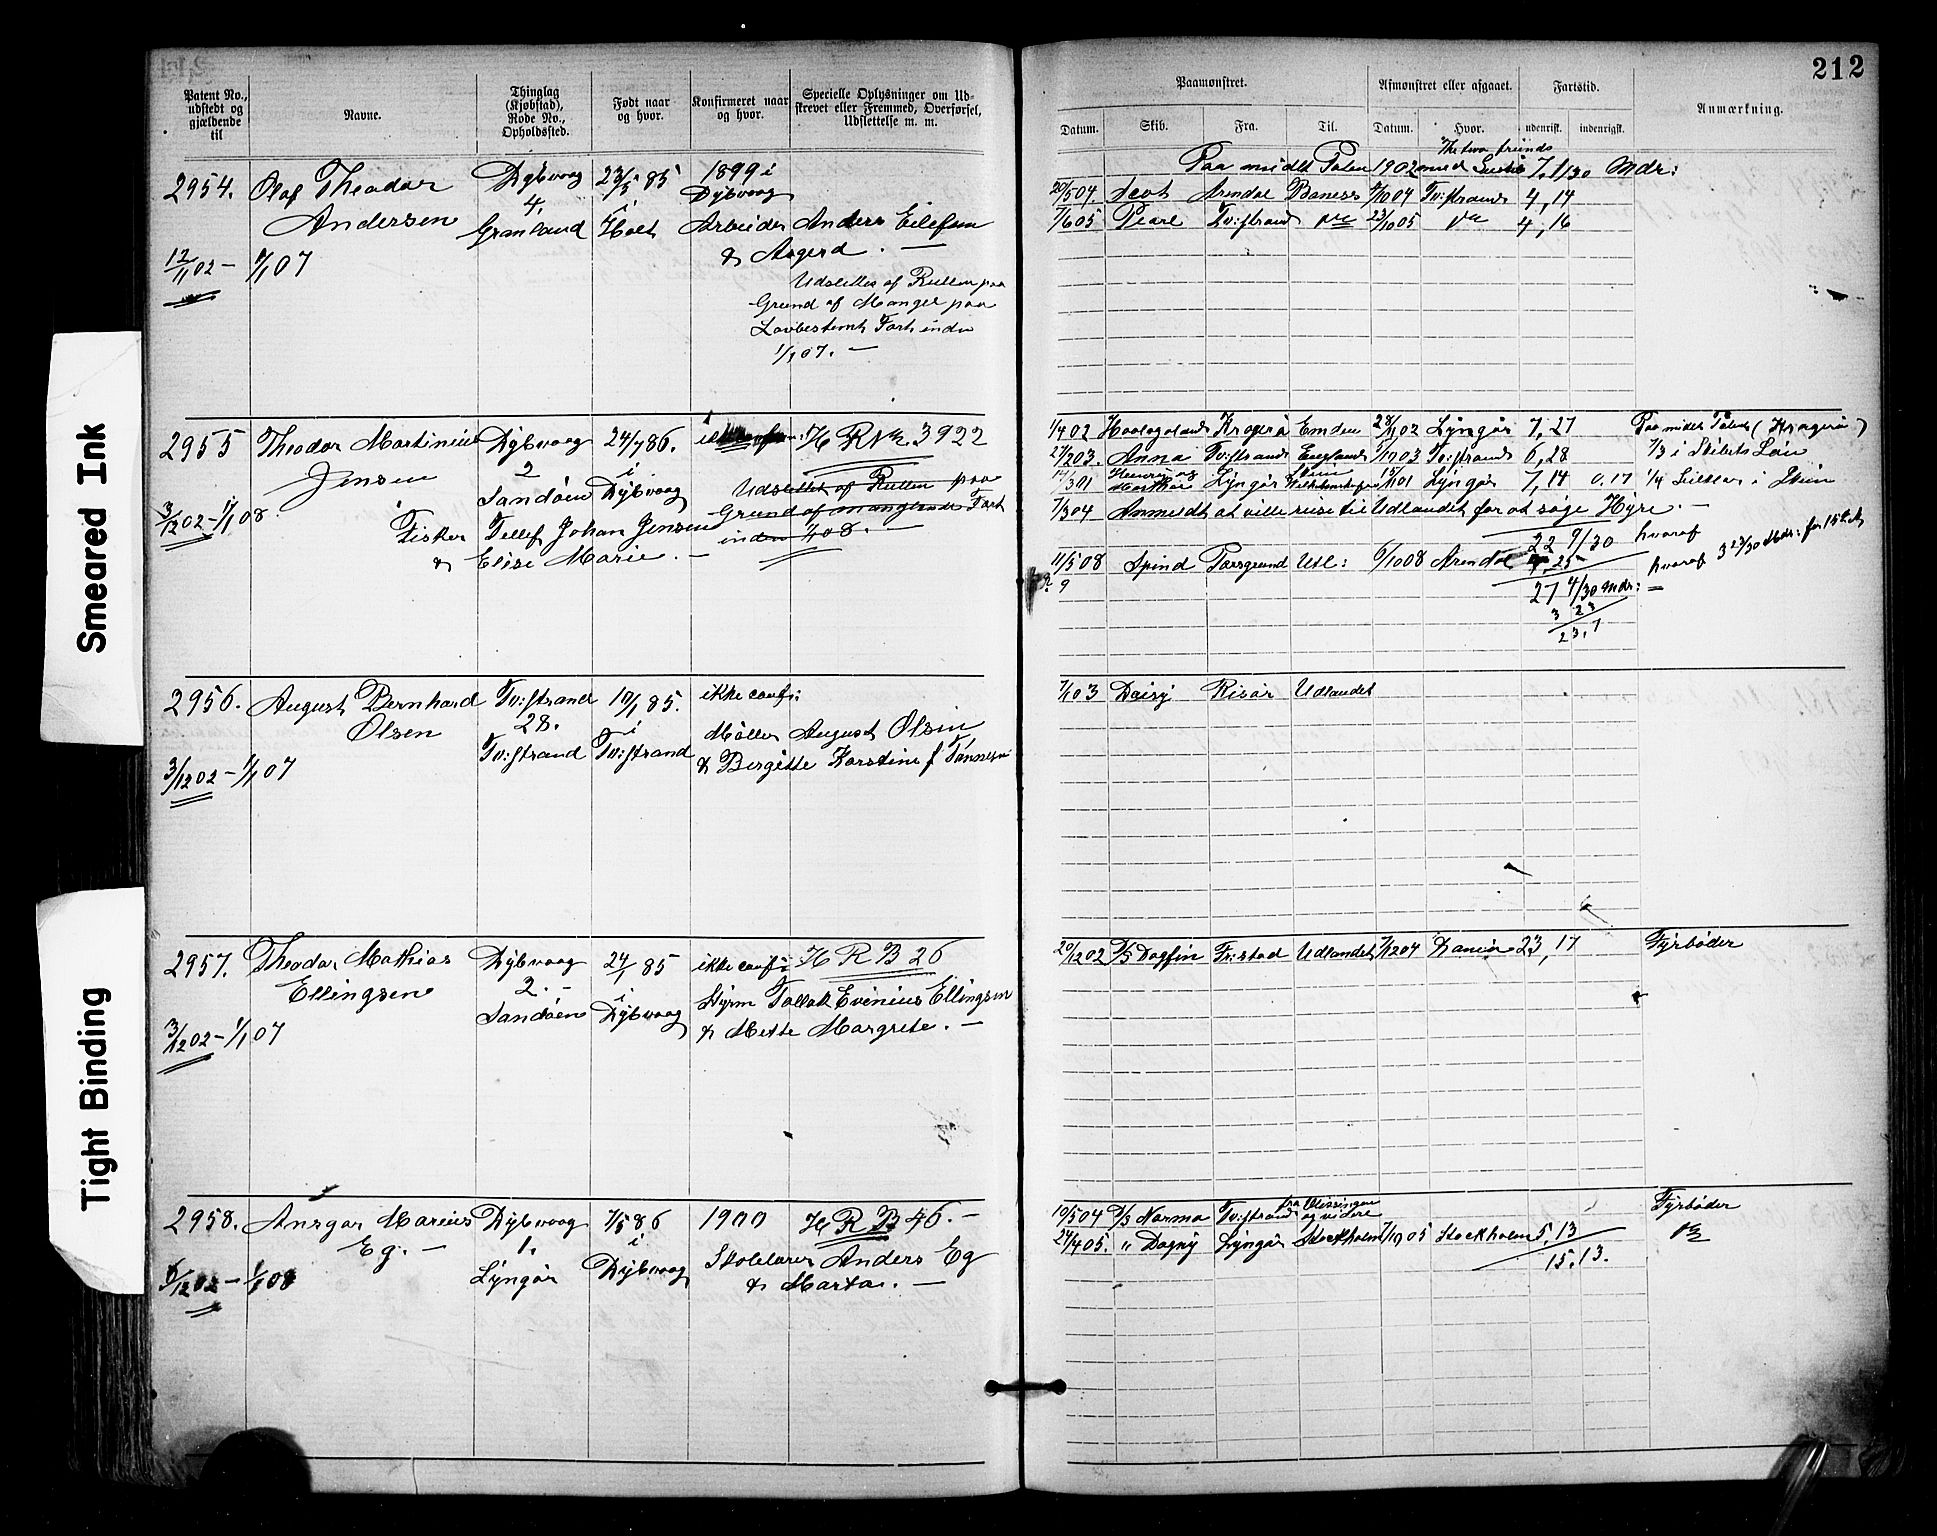 212
Smeared Ink
Tight Binding
Patent No., udstedt og gjældende til
Navne.
Thinglag (Kjøbstad), Rode No., Opholdssted.
Født naar og hvor.
Konfirmeret naar og hvor.
Specielle Oplysninger om Udskrevet eller Fremmed, Overførsel, Udslettelse m. m.
Paamønstret.
Afmønstret eller afgaaet.
Fartstid.
Anmærkning.
Datum.
Skib.
Fra.
Til.
Datum.
Hvor.
udenrigst.
indenrigst.
2954. Olaf Theodor Dybvaag 23/5 85 1899 i
Andersen 4. i Dybvaag
Granland Holt Arbeider Anders Eilefsen
12/11 02 – 1/1 07 & Asgerd. —
Udslettes af Rullen paa
Grund af Mangel paa
Lovbestemt Fart inden
1/1 07. —
The two friends
Paa midlt Paten 1902 med 7, 1/30 Mdr:
20/5 04. Scot Arendal 7/10 04 Tv:strand 4, 14
7/6 05 Pearl Tv:strand 23/10 05 4, 16
2955 Theodor Martinius Dybvaag 24/7 86. H R No 3922
Jensen 2 i
Sandøen Dybvaag
3/12 02 – 1/1 08.
Udslettet af Rullen paa
Grund af manglende Fart
inden 1/1 08. —
Fisker Tellef Johan Jensen
& Elise Marie. —
1/4 02 Haalogaland Kragerø Emden 28/11 02 Lyngør 7, 27
Paa midlt Paten (Kragerø)
2/2 03. Anna Tv:strand England 5/10 03 Tv:strand 6, 28
Lyngør Lyngør 7, 14 0,17
7/3 04 Anmeldt at ville reise til Udlandet for at søge Hyre. —
22 9/30 hvoraf
11/5 08 Spind Porsgrund Utl: 6/10 08 Arendal 4, 25
hvoraf 3 23/30 Mdr: for
27 4/30 Mdr: =
3 23
23, 7
2956. August Bernhard Tv:strand 10/1 85. ikke conf:
Olsen 28. i
Tv:strand Tv:strand
Møller August Olsen
3/12 02 – 1/1 07 & Birgitte Karstine f
7/1 03 Daisy Risør Udlandet
2957. Theodor Mathias Dybvaag 24/1 85 ikke conf: H R B 26
Ellingsen 2. – i
Sandøen Dybvaag
Styrm Tallak Evenius Ellingsen
3/12 02 – 1/1 07 & Mette Margrete. —
20/12 02 D/S Dagfin Fr:stad Udlandet 7/12 04 23, 17 Fyrbøder
2958. Ansgar Marius Dybvaag 7/5 86 1900 H R B 46. –
Eg. – 1. i
Lyngør Dybvaag
Skolelærer Anders Eg
6/12 02 – 1/1 08 & Marta. —
fra Vlissingen
og videre
10/5 04 D/S Norma Tv:strand Fyrbøder
27/4 05. " Dagny Lyngør Stockholm 7/10 05 Stockholm 5, 13
15, 13.